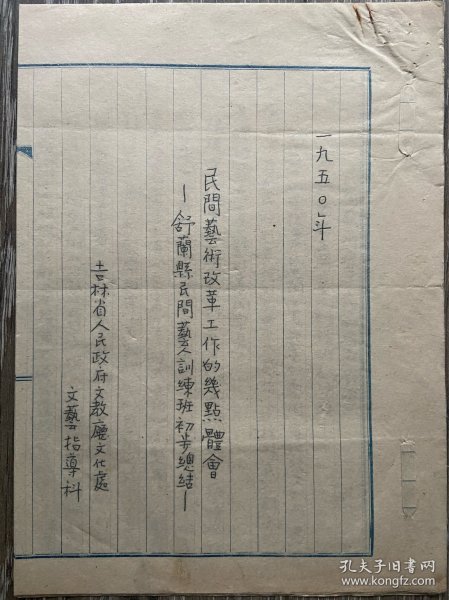 一九五〇年
民間藝術改革工作的幾點體會
—舒蘭縣民間藝人訓練班初步總結—
吉林省人民政府文教廳文化處
文藝指導科
孔夫子旧书网
www.kongfz.com